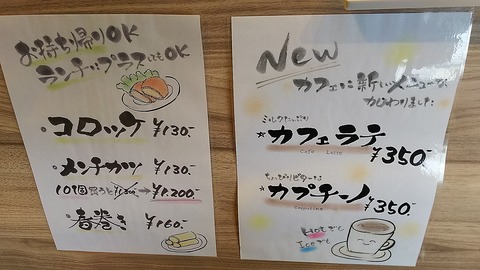 お待ち帰りOK
ランチにプラスしてもOK
・コロッケ ¥130.-
・メンチカツ ¥130.-
10個買うと ¥1,300 → ¥1,200.-
・春巻き ¥160.-
New
カフェに新しいメニューが
加わりました
ミルクたっぷり
☆カフェラテ
Cafe Latte
¥350.-
ちょっぴりビターな
☆カプチーノ
¥350.-
Hotでも
Iceでも